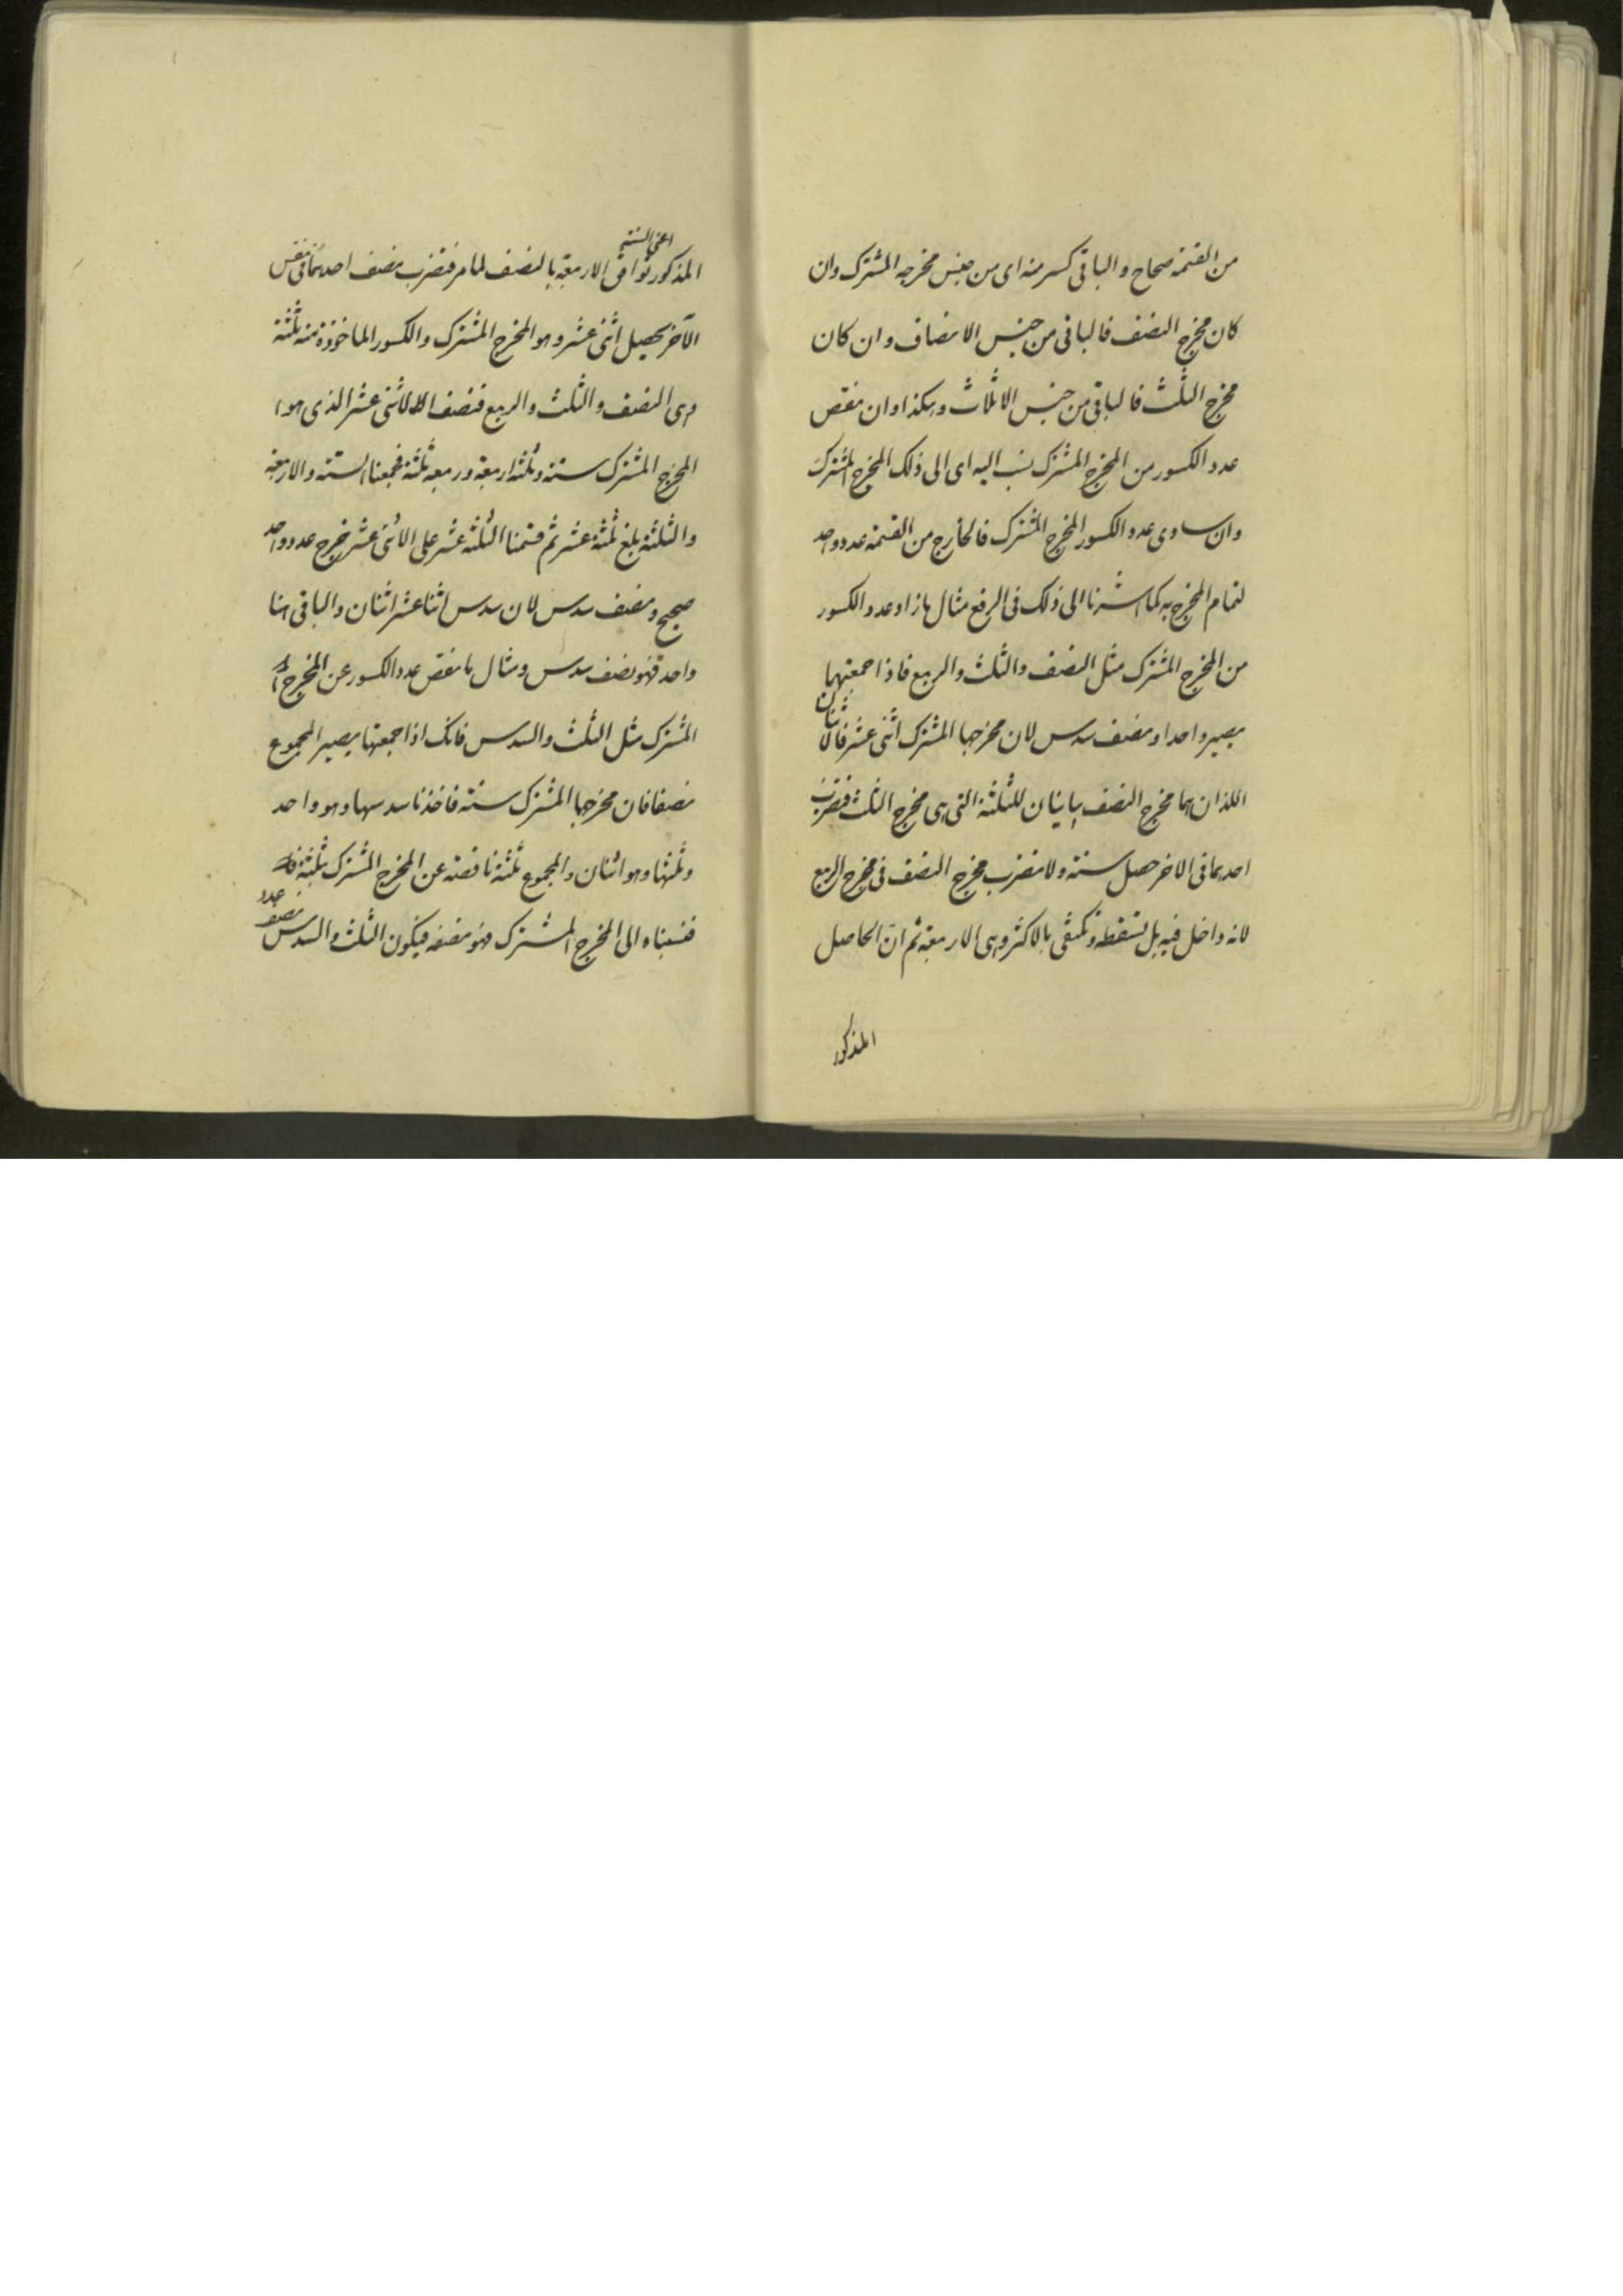 من القسمة صحاح والباقى كسر منه اى من جنس مخرجه المشترك وان
كان مخرج النصف فالباقى من جنس الانصاف وان كان
مخرج الثلث فالباقى من جنس الاثلاث وهكذا وان نقص
عدد الكسور من المخرج المشترك نسب اليه اى الى ذلك المخرج المشترك
وان ساوى عدد الكسور المخرج المشترك فالخارج من القسمة عدد واحد
لتمام المخرج به كما اشرنا الى ذلك فى الرفع مثال ما زاد عدد الكسور
من المخرج المشترك مثل النصف والثلث والربع فاذا جمعتهما
يصير واحدا ونصف سدس لان مخرجها المشترك اثنى عشر فالاثنان
اللذان هما مخرج النصف يباينان للثلثة التى هى مخرج الثلث فنضرب
احدهما فى الاخر حصل ستة ولا نضرب مخرج النصف فى مخرج الربع
لانه داخل فيه بل نسقطه ونكتفى بالاكثر وهى الاربعة ثم انّ الحاصل
المذكور
اعنى الستة
المذكور توافق الاربعة بالنصف لما مر فنضرب نصف احدهما فى نفس
الآخر يحصل اثنى عشر وهو المخرج المشترك والكسور الماخوذة منه ثلثة
وهى النصف والثلث والربع فنصف الاثنى عشر الذى هو
المخرج المشترك ستة وثلثه اربعة وربعه ثلثة فجمعنا الستة والاربعة
والثلثة بلغ ثلثة عشر ثم قسمنا الثلثة عشر على الاثنى عشر خرج عدد واحد
صحيح ونصف سدس لان سدس اثنا عشر اثنان والباقى هنا
واحد فهو نصف سدس ومثال ما نقص عدد الكسور عن المخرج
المشترك مثل الثلث والسدس فانك اذا جمعتها يصير المجموع
نصفا فان مخرجها المشترك ستة فاخذنا سدسها وهو واحد
وثلثها وهو اثنان والمجموع ثلثة ناقصة عن المخرج المشترك بثلثة
فنسبناه الى المخرج المشترك فهو نصفه فيكون الثلث والسدس
نصف عدد